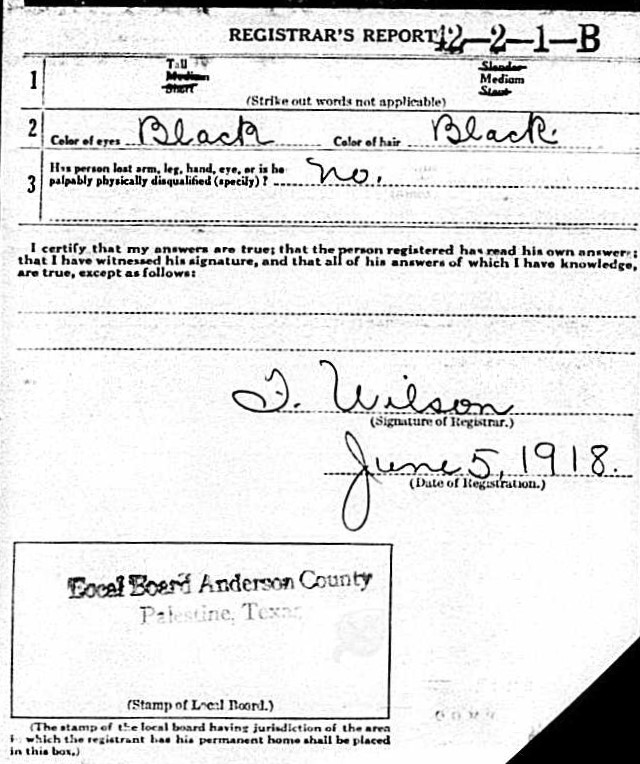 REGISTRAR'S REPORT 42-2-1-B
1 Tall Slender
Medium Medium
Short Stout
(Strike out words not applicable)
2 Color of eyes Black Color of hair Black.
3 Has person lost arm, leg, hand, eye, or is he
palpably physically disqualified (specify)? no.
I certify that my answers are true; that the person registered has read his own answers;
that I have witnessed his signature, and that all of his answers of which I have knowledge,
are true, except as follows:
Wilson
(Signature of Registrar.)
June 5, 1918.
(Date of Registration.)
Local Board Anderson County
Palestine, Texas
(Stamp of Local Board.)
(The stamp of the local board having jurisdiction of the area
in which the registrant has his permanent home shall be placed
in this box.)